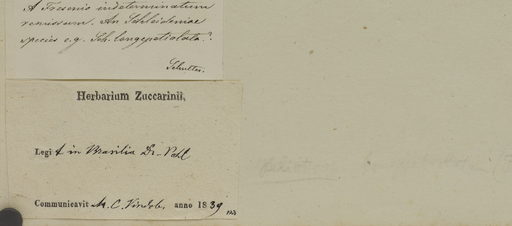 A Fresenio indeterminatum
remissum. An Schleideniae
species e.g. Sch. longepetiolata?
Herbarium Zuccarinii,
Legit in Brasilia Dr. Pohl
Communicavit M. C. Vindob. anno 1839